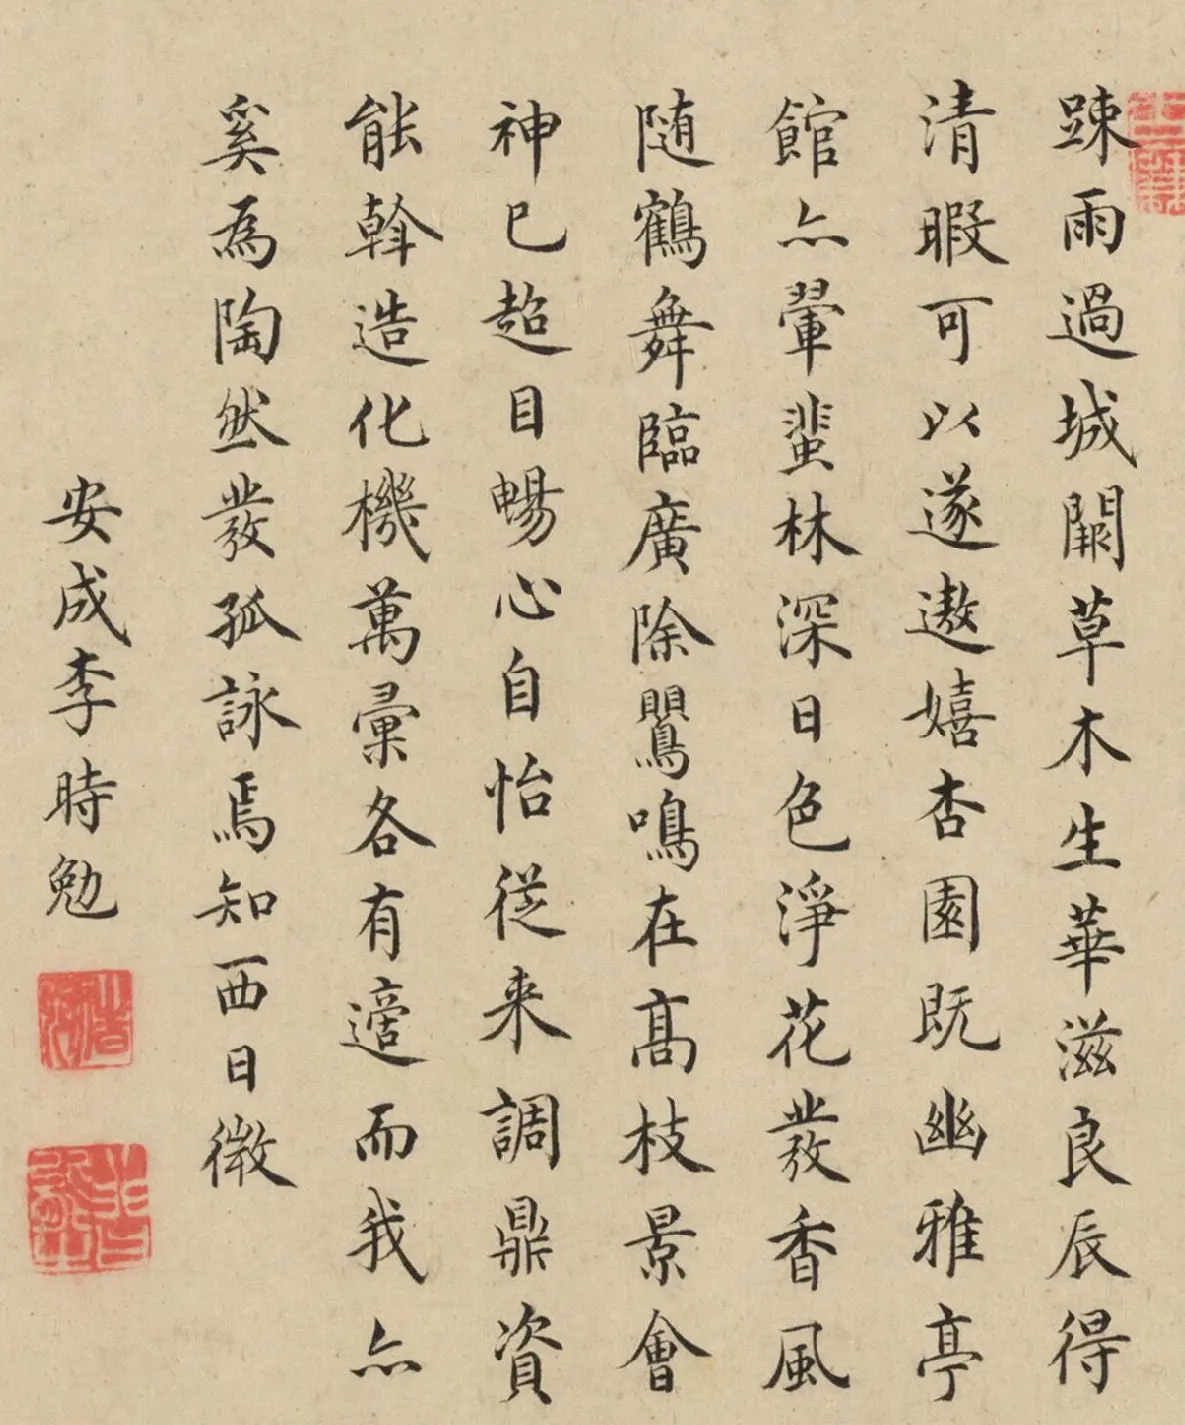 踈雨過城闕草木生華滋良辰得
清暇可以遂遨嬉杏園既幽雅亭
館亦翬蜚林深日色淨花發香風
随鶴舞臨廣除鸎鳴在髙枝景會
神已超目暢心自怡従来調鼎資
能斡造化機萬彚各有適而我亦
奚為陶然發孤詠焉知西日微
安成李時勉